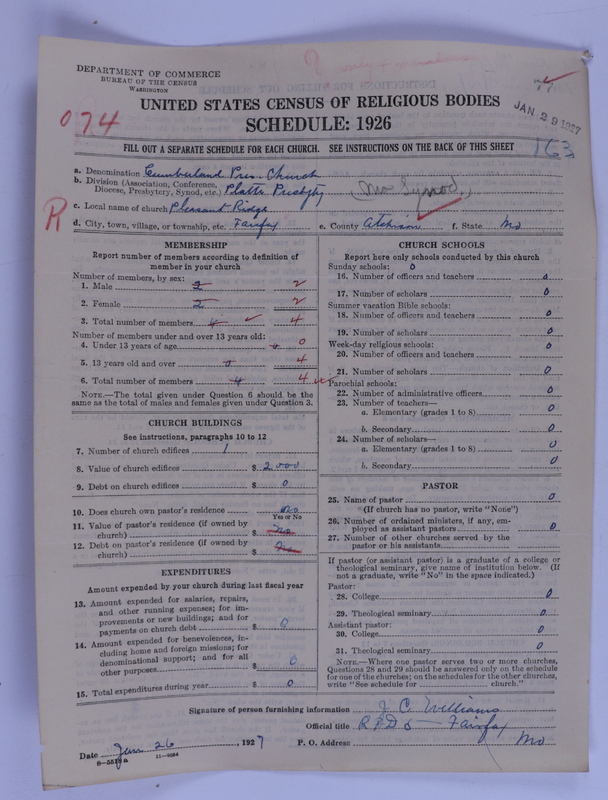 DEPARTMENT OF COMMERCE
BUREAU OF THE CENSUS
WASHINGTON
UNITED STATES CENSUS OF RELIGIOUS BODIES
SCHEDULE: 1926
JAN 29 1927
074
FILL OUT A SEPARATE SCHEDULE FOR EACH CHURCH. SEE INSTRUCTIONS ON THE BACK OF THIS SHEET
163
a. Denomination Cumberland Pres. Church
b. Division (Association, Conference, Diocese, Presbytery, Synod, etc.) Platte Presbytry (Mo Synod)
R
c. Local name of church Pleasant Ridge
d. City, town, village, or township, etc. Fairfax e. County Atchison f. State Mo
MEMBERSHIP
Report number of members according to definition of
member in your church
Number of members, by sex:
1. Male 2 2
2. Female 2 2
3. Total number of members 4 4
Number of members under and over 13 years old:
4. Under 13 years of age 0 0
5. 13 years old and over 0 4
6. Total number of members 4 4
NOTE.—The total given under Question 6 should be
same as the total of males and females given under Question 3.
CHURCH BUILDINGS
See instructions, paragraphs 10 to 12
7. Number of church edifices 1
8. Value of church edifices $ 2000
9. Debt on church edifices $ 0
10. Does church own pastor's residence no
Yes or No
11. Value of pastor's residence (if owned by
church) $ no
12. Debt on pastor's residence (if owned by
church) $ no
EXPENDITURES
Amount expended by your church during last fiscal year
13. Amount expended for salaries, repairs,
and other running expenses; for im-
provements or new buildings; and for
payments on church debt $ 0
14. Amount expended for benevolences, in-
cluding home and foreign missions; for
denominational support; and for all
other purposes $ 0
15. Total expenditures during year $ 0
CHURCH SCHOOLS
Report here only schools conducted by this church
Sunday schools: 0
16. Number of officers and teachers 0
17. Number of scholars 0
Summer vacation Bible schools:
18. Number of officers and teachers 0
19. Number of scholars 0
Week-day religious schools: 0
20. Number of officers and teachers
21. Number of scholars 0
Parochial schools:
22. Number of administrative officers 0
23. Number of teachers—
a. Elementary (grades 1 to 8) 0
b. Secondary 0
24. Number of scholars—
a. Elementary (grades 1 to 8) 0
b. Secondary 0
PASTOR
25. Name of pastor 0
(If church has no pastor, write "None")
26. Number of ordained ministers, if any, em-
ployed as assistant pastors 0
27. Number of other churches served by the
pastor or his assistants
If pastor (or assistant pastor) is a graduate of a college or
theological seminary, give name of institution below. (If
not a graduate, write "No" in the space indicated.)
Pastor:
28. College 0
29. Theological seminary 0
Assistant pastor:
30. College 0
31. Theological seminary 0
NOTE.—Where one pastor serves two or more churches,
Questions 28 and 29 should be answered only on the schedule
for one of the churches; on the schedules for the other churches,
write "See schedule for church."
Signature of person furnishing information J. C. Williams
Official title R.F.D 2 — Fairfax
Date Jan 26, 1927 P. O. Address Mo
8-5518a 11-9084